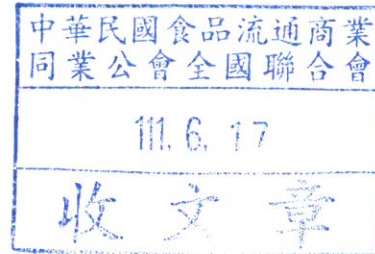 中華民國食品流通商業
同業公會全國聯合會
111. 6. 17
收文章